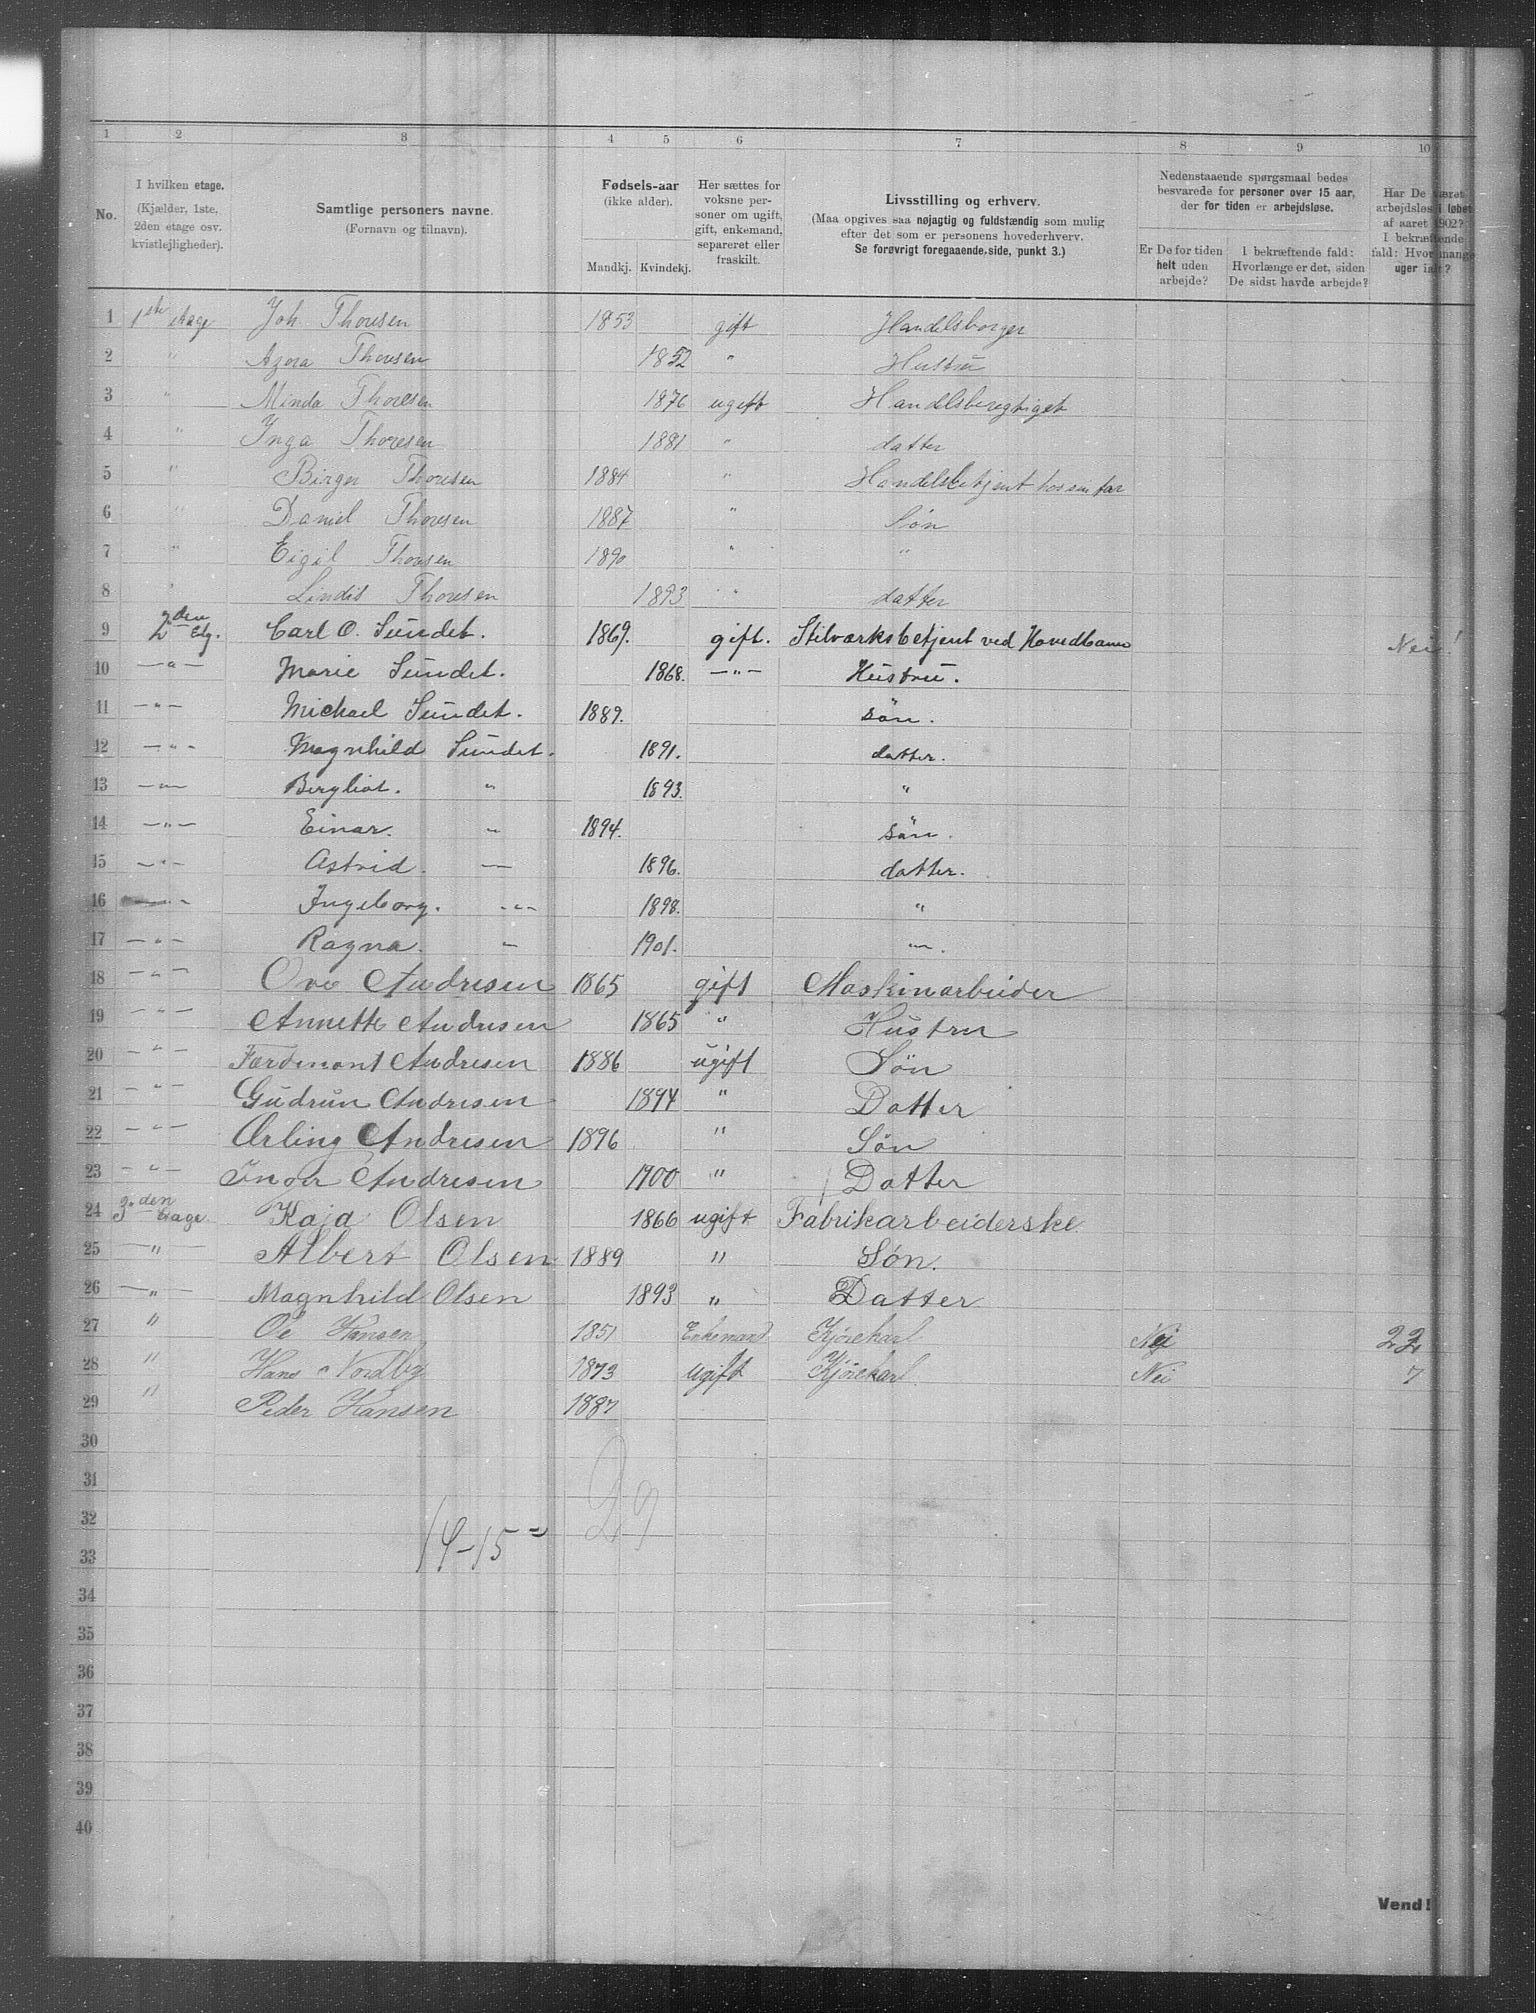 1 2 3 4 5 6 7 8 9 10
No.
I hvilken etage.
(Kjælder, 1ste,
2den etage osv.
kvistlejligheder).
Samtlige personers navne.
(Fornavn og tilnavn).
Fødsels-aar
(ikke alder).
Mandkj. Kvindekj.
Her sættes for
voksne per-
soner om ugift,
gift, enkemand,
separeret eller
fraskilt.
Livsstilling og erhverv.
(Maa opgives saa nøjagtig og fuldstændig som mulig
efter det som er personens hovederhverv.
Se forøvrigt foregaaende side, punkt 3.)
Nedenstaaende spørgsmaal bedes
besvarede for personer over 15 aar,
der for tiden er arbejdsløse.
Er De for tiden
helt uden
arbejde?
I bekræftende fald:
Hvorlænge er det, siden
De sidst havde arbejde?
Har De været
arbejdsløs i løbet
af aaret 1902?
I bekræftende
fald: Hvor mange
uger ialt?
1 1ste etage Joh. Thoresen 1853 gift Handelsborger
2 " Azora Thoresen 1852 " Hustru
3 " Minda Thoresen 1876 ugift Handelsberegtiget
4 " Inga Thoresen 1881 " datter
5 " Birger Thoresen 1884 " Handelsbetjent hos sin far
6 " Daniel Thoresen 1887 " Søn
7 " Eigil Thoresen 1890 " "
8 " Lindis Thoresen 1893 " datter
9 2den Etg. Carl O. Sundet. 1869. gift. Stilværksbetjent ved Hovedbanen Nei!
10 — " — Marie Sundet. 1868. — " — Hustru.
11 — " — Michael Sundet. 1889. søn.
12 — " — Magnhild Sundet. 1891. datter.
13 — " — Bergliot. " 1893. "
14 — " — Einar. " 1894. søn.
15 — " — Astrid. — 1896. datter.
16 — " — Ingeborg. - " - 1898. "
17 — " — Ragna. " 1901. — " —.
18 — " — Ove Andresen 1865 gift Maskinarbeider
19 — " — Annette Andresen 1865 " Hustru
20 — " — Ferdinant Andresen 1886 ugift Søn
21 — " — Gudrun Andresen 1894 " Datter
22 — " — Erling Andresen 1896 " Søn
23 — " — Inger Andresen 1900 " Datter
24 3den Etage. Kaja Olsen 1866 ugift Fabrikarbeiderske
25 — " — Albert Olsen 1889 " Søn.
26 — " — Magnhild Olsen 1893 " Datter
27 " Ole Hansen 1851 Enkemand Kjørekarl Nei 22
28 " Hans Nordby 1873 ugift Kjørekarl Nei 7
29 " Peder Hansen 1887
30
31
32
33
29
14-15 =
34
35
36
37
38
39
40
Vend!